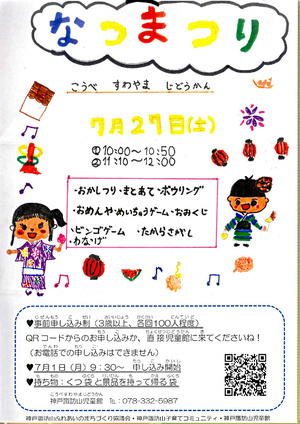 なつまつり
こうべ すわやま じどうかん
7月27日(土)
①10:00〜10:50
②11:10〜12:00
・おかしつり・まとあて・ボウリング
・おめんや・めいちゅうゲーム・おみくじ
・ビンゴゲーム ・たからさがし
・わなげ
♥事前申し込み制 (3歳以上、各回100人程度)
QRコードからのお申し込みか、直接児童館に来てくださいね!
(お電話での申し込みはできません)
♥7月1日(月)9:30〜 申し込み開始
♥持ち物:くつ袋と景品を持って帰る袋
こうべすわやまじどうかん
神戸諏訪山児童館 ☎:078-332-5987
神戸諏訪山ふれあいのまちづくり協議会・神戸諏訪山子育てコミュニティ・神戸諏訪山児童館